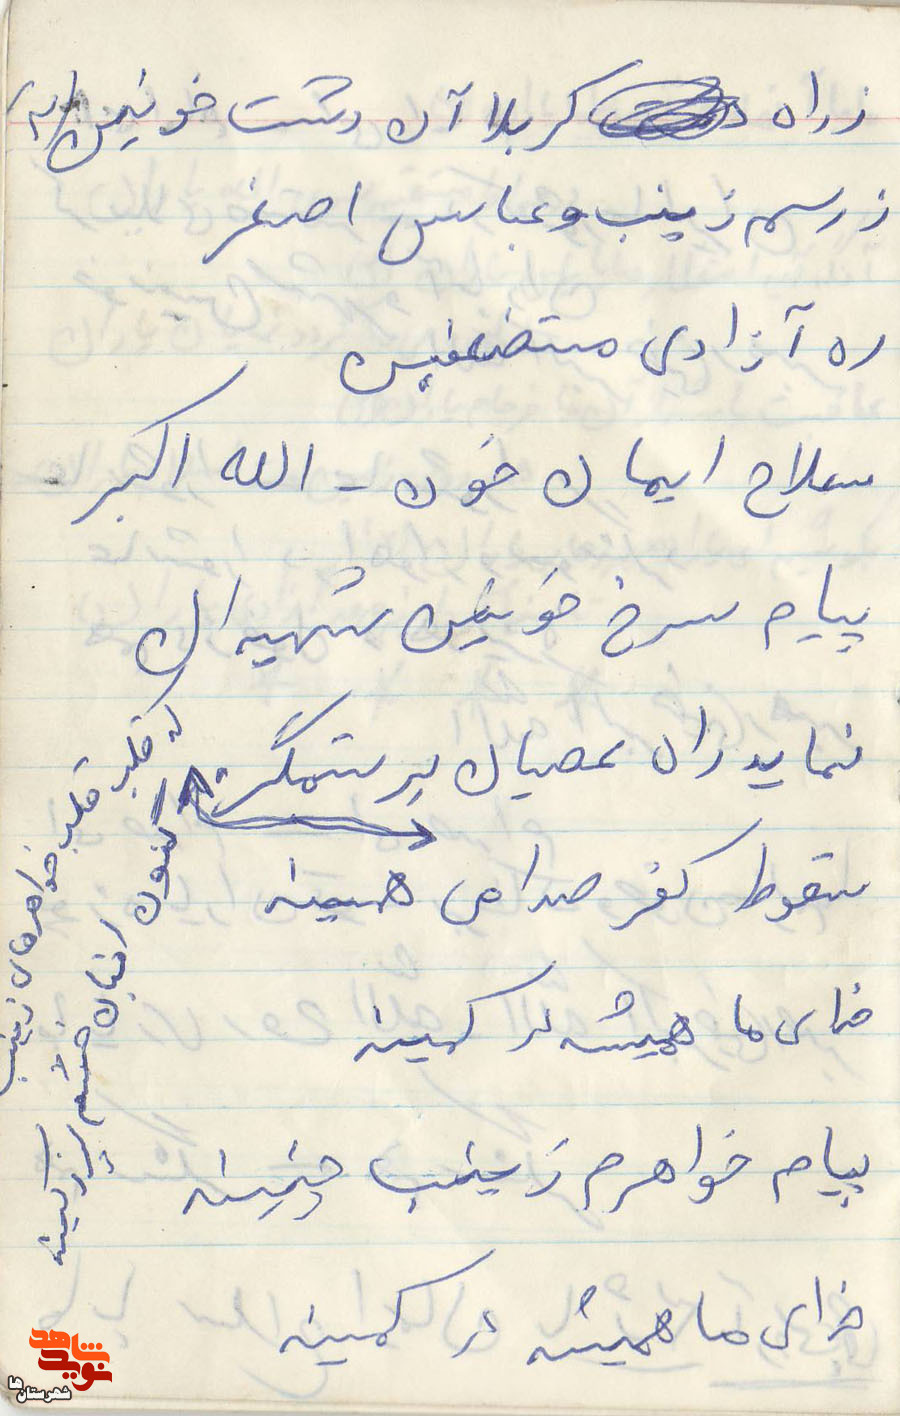 ز راه کربلا آن دشت خونین (۲)
ز رسم زینب و عباس اصغر
ره آزادی متضعفین
سلاح ایمان خون - الله اکبر
پیام سرخ خونین شهیدان
نماید راه عصیان بر ستمگر
سقوط کفر صدامی همینه
خدای ما همیشه در کمینه
پیام خواهرم زینب چنینه
خدای ما همیشه در کمینه
که قلب قلب خواهرهای زینب
کنون انبان خشم پر ز کینه
شاهد
نوید
شهرستان‌ها